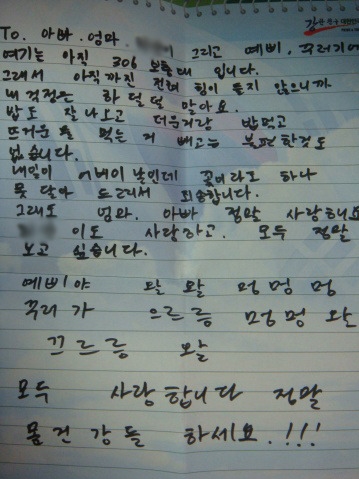 강한친구 대한민국
To. 아빠. 엄마. 이 그리고 예삐. 꾸러기에
여기는 아직 306 보충대 입니다.
그래서 아직까진 전혀 힘이 들지 않으니까
내 걱정은 하덜덜 말아요.
밥도 잘 나오고 더운거랑 밥먹고
뜨거운 물 먹는 거 빼고는 불편한것도
없습니다.
내일이 어버이 날인데 꽃이라도 하나
못 달아 드려서 죄송합니다.
그래도 엄마. 아빠 정말 사랑해요
이도 사랑하고. 모두 정말
보고 싶습니다.
예삐야 왈 왈 멍 멍 멍
꾸러가 으르릉 멍멍 왈
끄르릉 왈
모두 사랑합니다 정말
몸 건강들 하세요.!!!